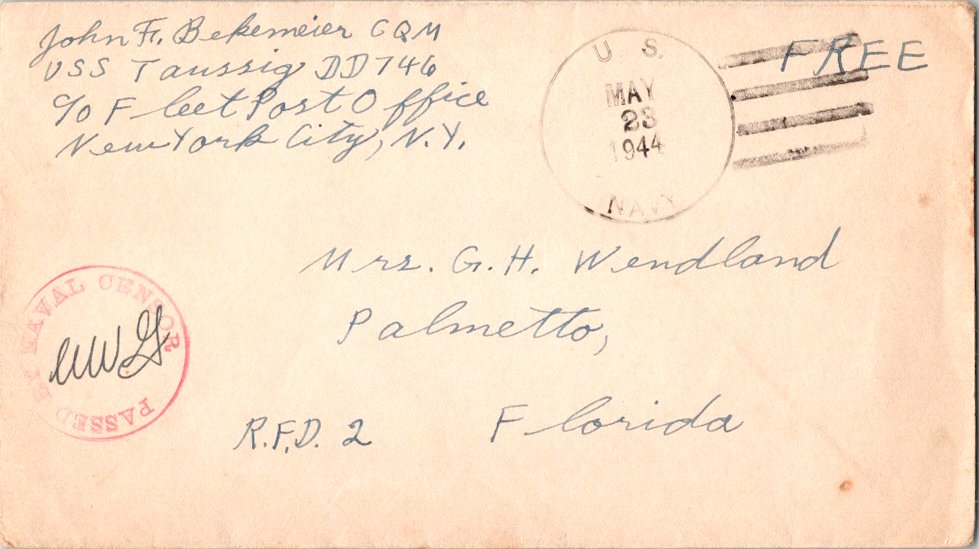 John F. Bekemeier CQM
USS Taussig DD746
c/o Fleet Post Office
New York City, N.Y.
U. S.
MAY
23
1944
NAVY
FREE
Mrs. G. H. Wendland
Palmetto,
Florida
R.F.D. 2
PASSED BY NAVAL CENSOR